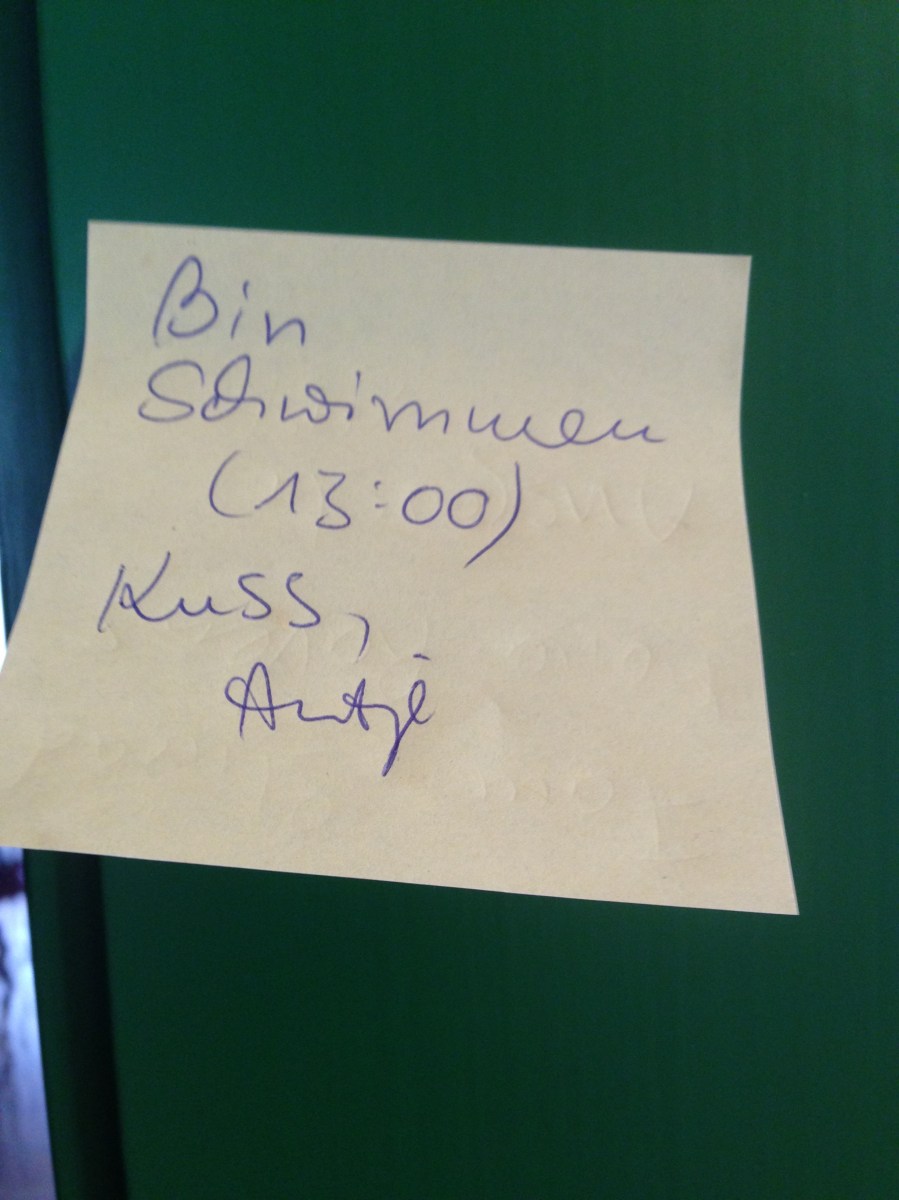 Bin
Schwimmen
(13:00)
Kuss,
Antje